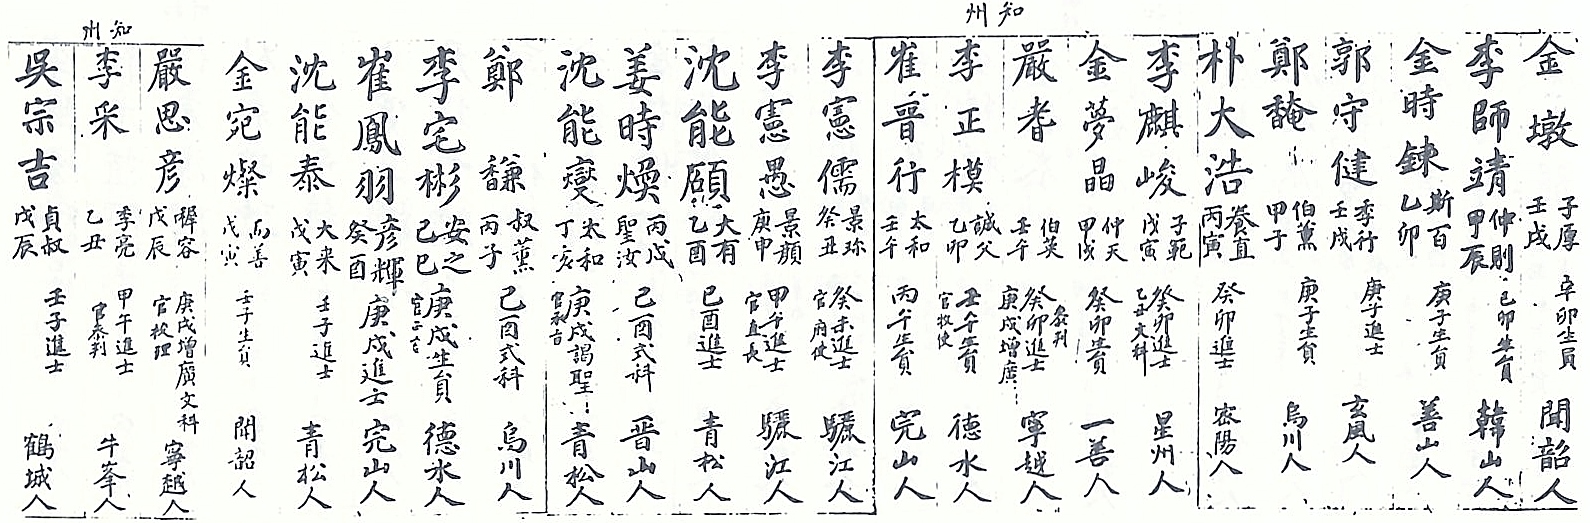 金墩 子厚 壬戌 辛卯生員 聞韶人
李師靖 仲則 甲辰 己卯生員 韓山人
金時鍊 斯百 乙卯 庚子生員 善山人
郭守健 季行 壬戌 庚子進士 玄風人
鄭馣 伯薰 甲子 庚子生員 烏川人
朴大浩 養直 丙寅 癸卯進士 密陽人
李麒峻 子範 戊寅 癸卯進士 乙丑文科 星州人
金夢晶 仲天 甲戌 癸卯生員 一善人
知州
嚴耆 伯英 壬午 癸卯進士 參判 庚戌增廣 寧越人
李正模 誠父 乙卯 壬午生員 官牧使 德水人
崔晉行 太和 壬午 丙午生員 完山人
李憲儒 景珎 癸丑 癸未進士 官府使 驪江人
李憲愚 景顔 庚申 甲午進士 官直長 驪江人
沈能頤 大有 乙酉 己酉進士 青松人
姜時煥 丙戌 聖汝 己酉式科 晋山人
沈能燮 太和 丁亥 庚戌謁聖 官承旨 青松人
鄭馦 叔薰 丙子 己酉式科 烏川人
李宅彬 安之 己巳 庚戌生員 德水人
崔鳳羽 彦輝 癸酉 庚戌進士 完山人
沈能泰 大来 戊寅 壬子進士 青松人
金宛燦 而善 戊寅 壬子生員 聞韶人
嚴思彦 穉容 戊辰 庚戌增廣文科 官校理 寧越人
知州
李采 季亮 乙丑 甲午進士 官參判 牛峯人
吳宗吉 貞叔 戊辰 壬子進士 鶴城人